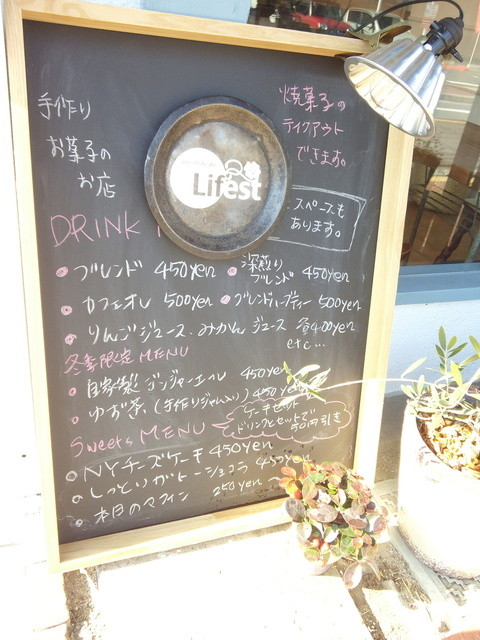 手作り
お菓子の
お店
焼菓子の
テイクアウト
できます。
Lifest
スペースも
あります。
DRINK
ブレンド 450yen
深煎り
ブレンド 450yen
カフェオレ 500yen
ブレンドハーブティー 500yen
りんごジュース、みかんジュース 各400yen
etc...
冬季限定 MENU
自家製ジンジャーエール 450yen
ゆず茶(手作りジャム入り) 450yen
Sweets MENU
ケーキセット
ドリンクとセットで
50円引き
NYチーズケーキ 450yen
しっとりガトーショコラ 450yen
本日のマフィン 250yen〜